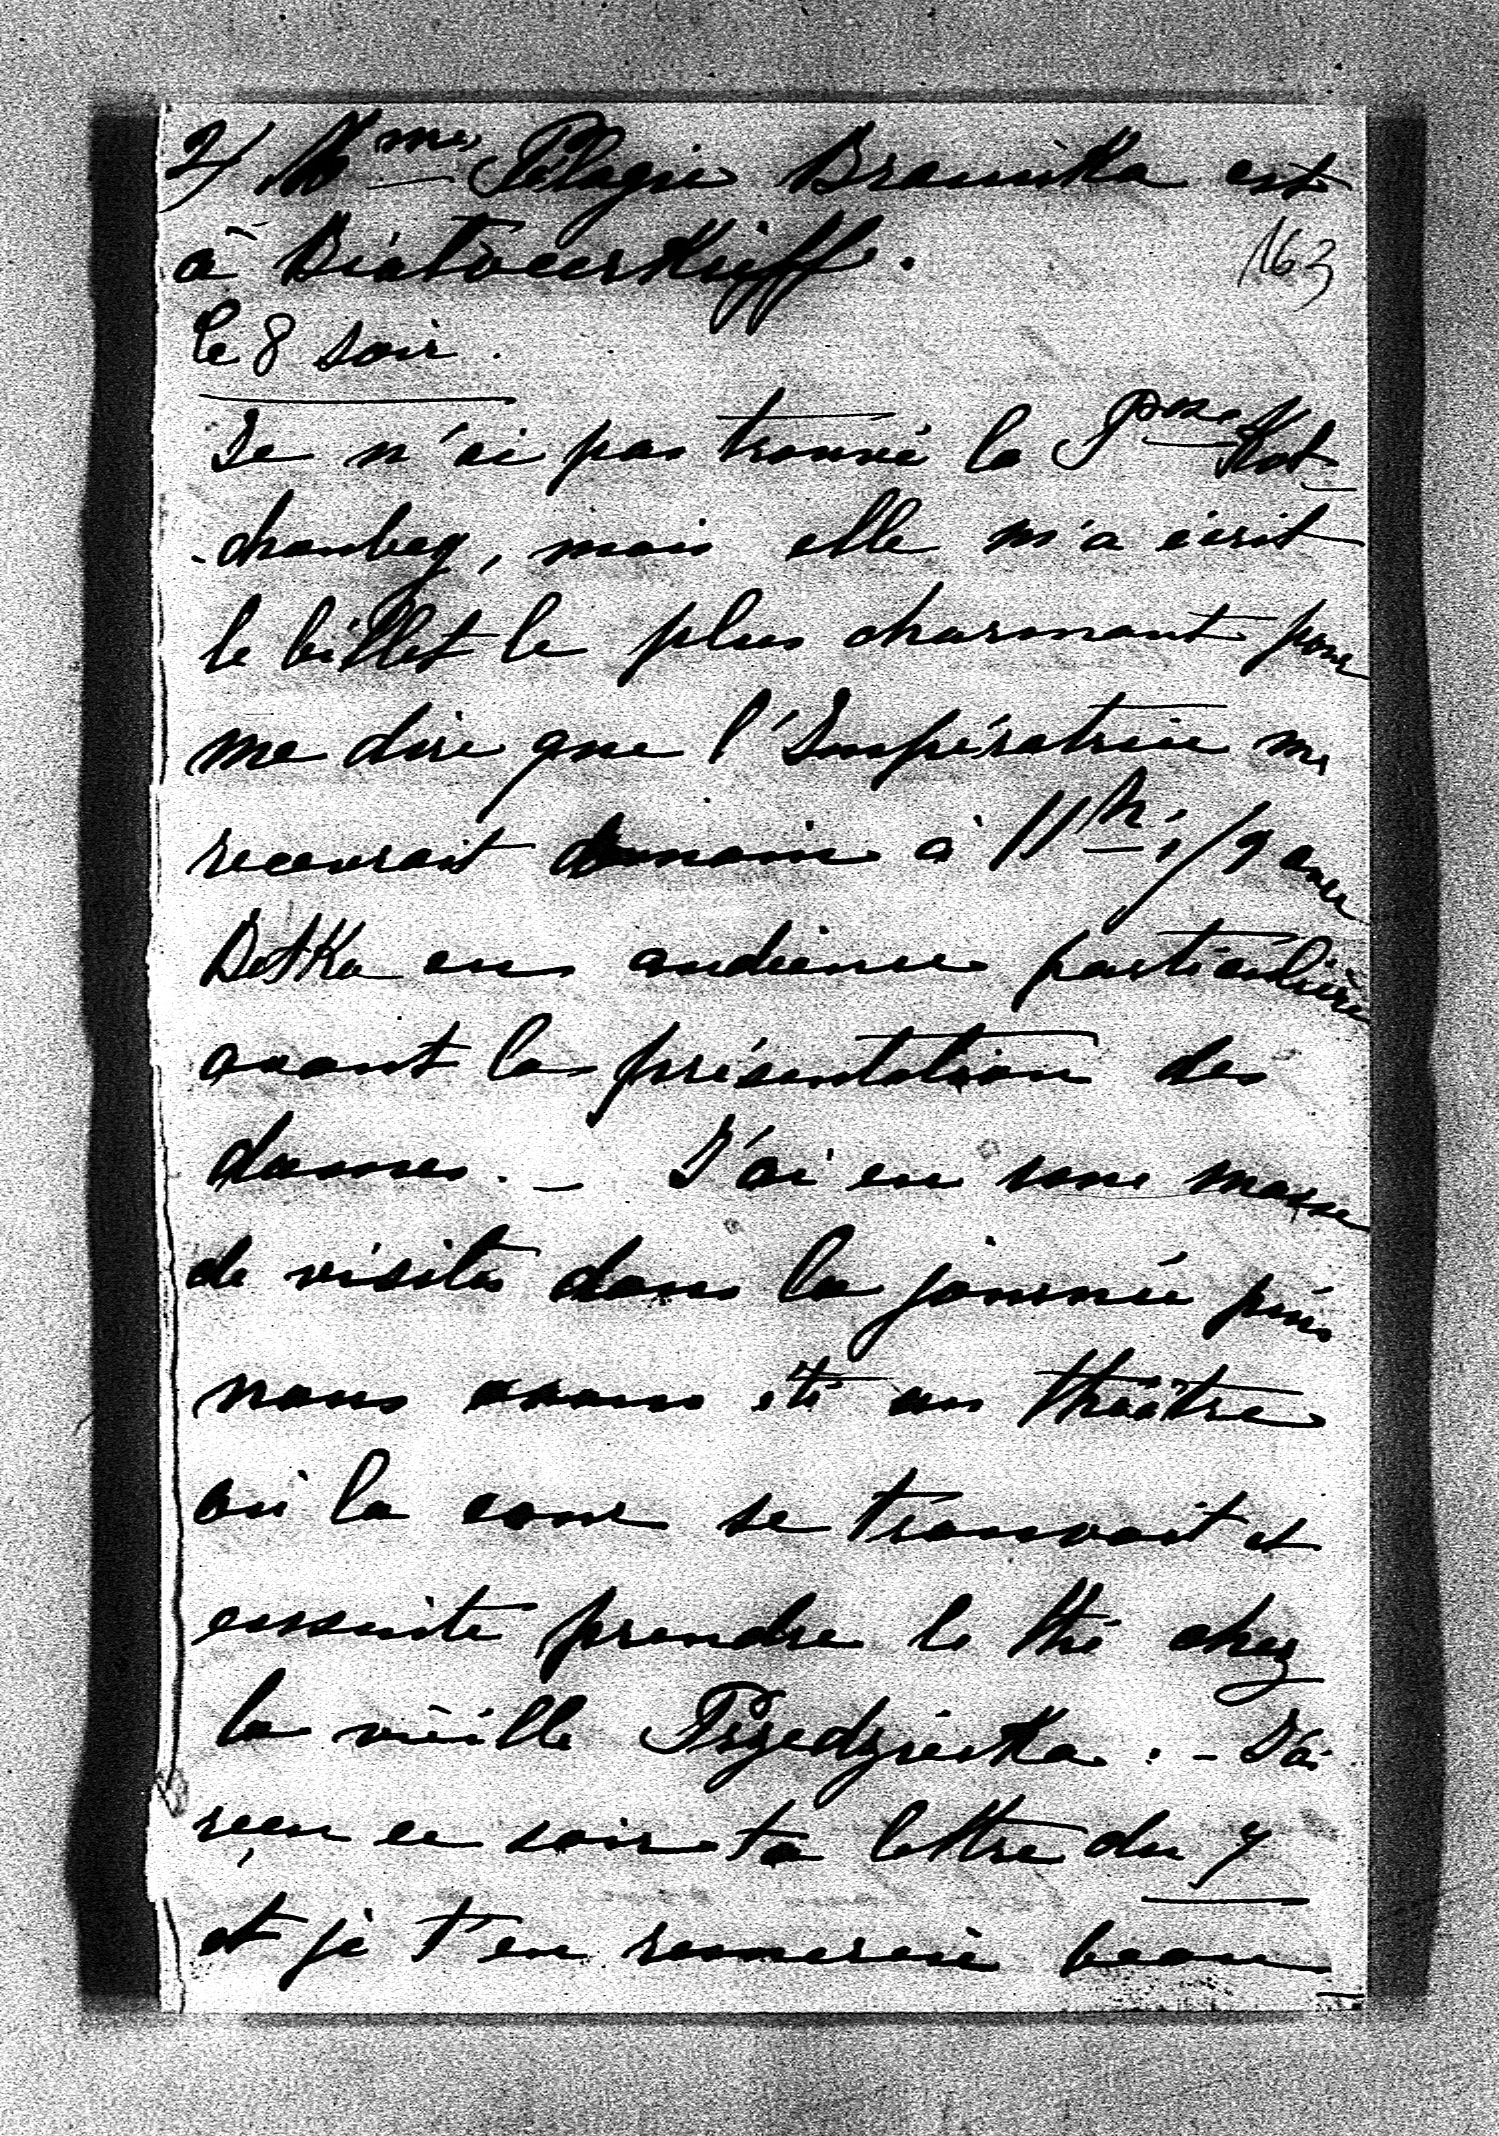 2/ Mme Pélagie Branicka est
à Biatocerkieff.
163
le 8 soir.
Je n'ai pas trouvé la Psse Kot-
-choubey, mais elle m'a écrit
le billet le plus charmant pour
me dire que l'Impératrice me
recevrait demain à 11h 1/2 avec
Betka en audience particulière
avant la présentation des
dames. — J'ai eu une masse
de visites dans la journée puis
nous avons été au théâtre
où la cour se trouvait et
ensuite prendre le thé chez
la vieille Przedziecka. — J'ai
reçu ce soir ta lettre du 7
et je t'en remercie beau-